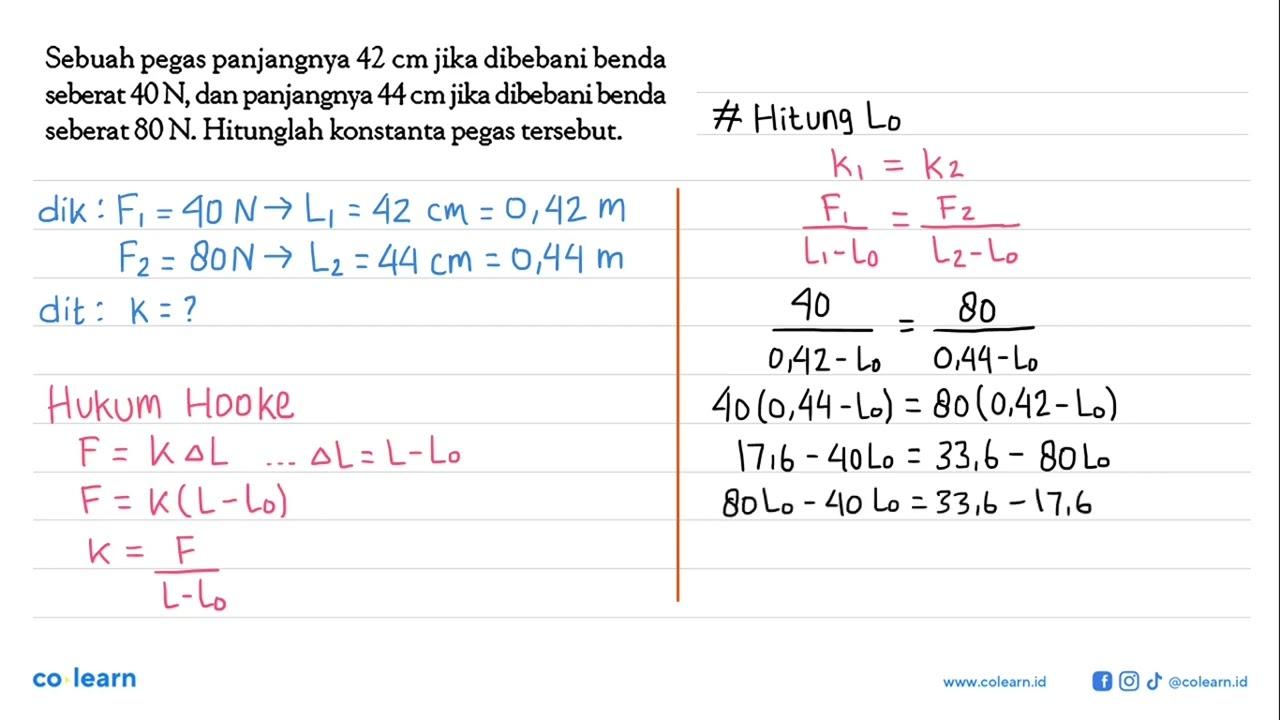 Sebuah pegas panjangnya 42 cm jika dibebani benda
seberat 40 N, dan panjangnya 44 cm jika dibebani benda
seberat 80 N. Hitunglah konstanta pegas tersebut.
dik : F₁ = 40 N → L₁ = 42 cm = 0,42 m
F₂ = 80 N → L₂ = 44 cm = 0,44 m
dit : k = ?
Hukum Hooke
F = k ΔL ... ΔL = L - L₀
F = k (L - L₀)
k = F
L - L₀
# Hitung L₀
k₁ = k₂
F₁ = F₂
L₁ - L₀ L₂ - L₀
40 = 80
0,42 - L₀ 0,44 - L₀
40 (0,44 - L₀) = 80 (0,42 - L₀)
17,6 - 40 L₀ = 33,6 - 80 L₀
80 L₀ - 40 L₀ = 33,6 - 17,6
co learn
www.colearn.id
@colearn.id